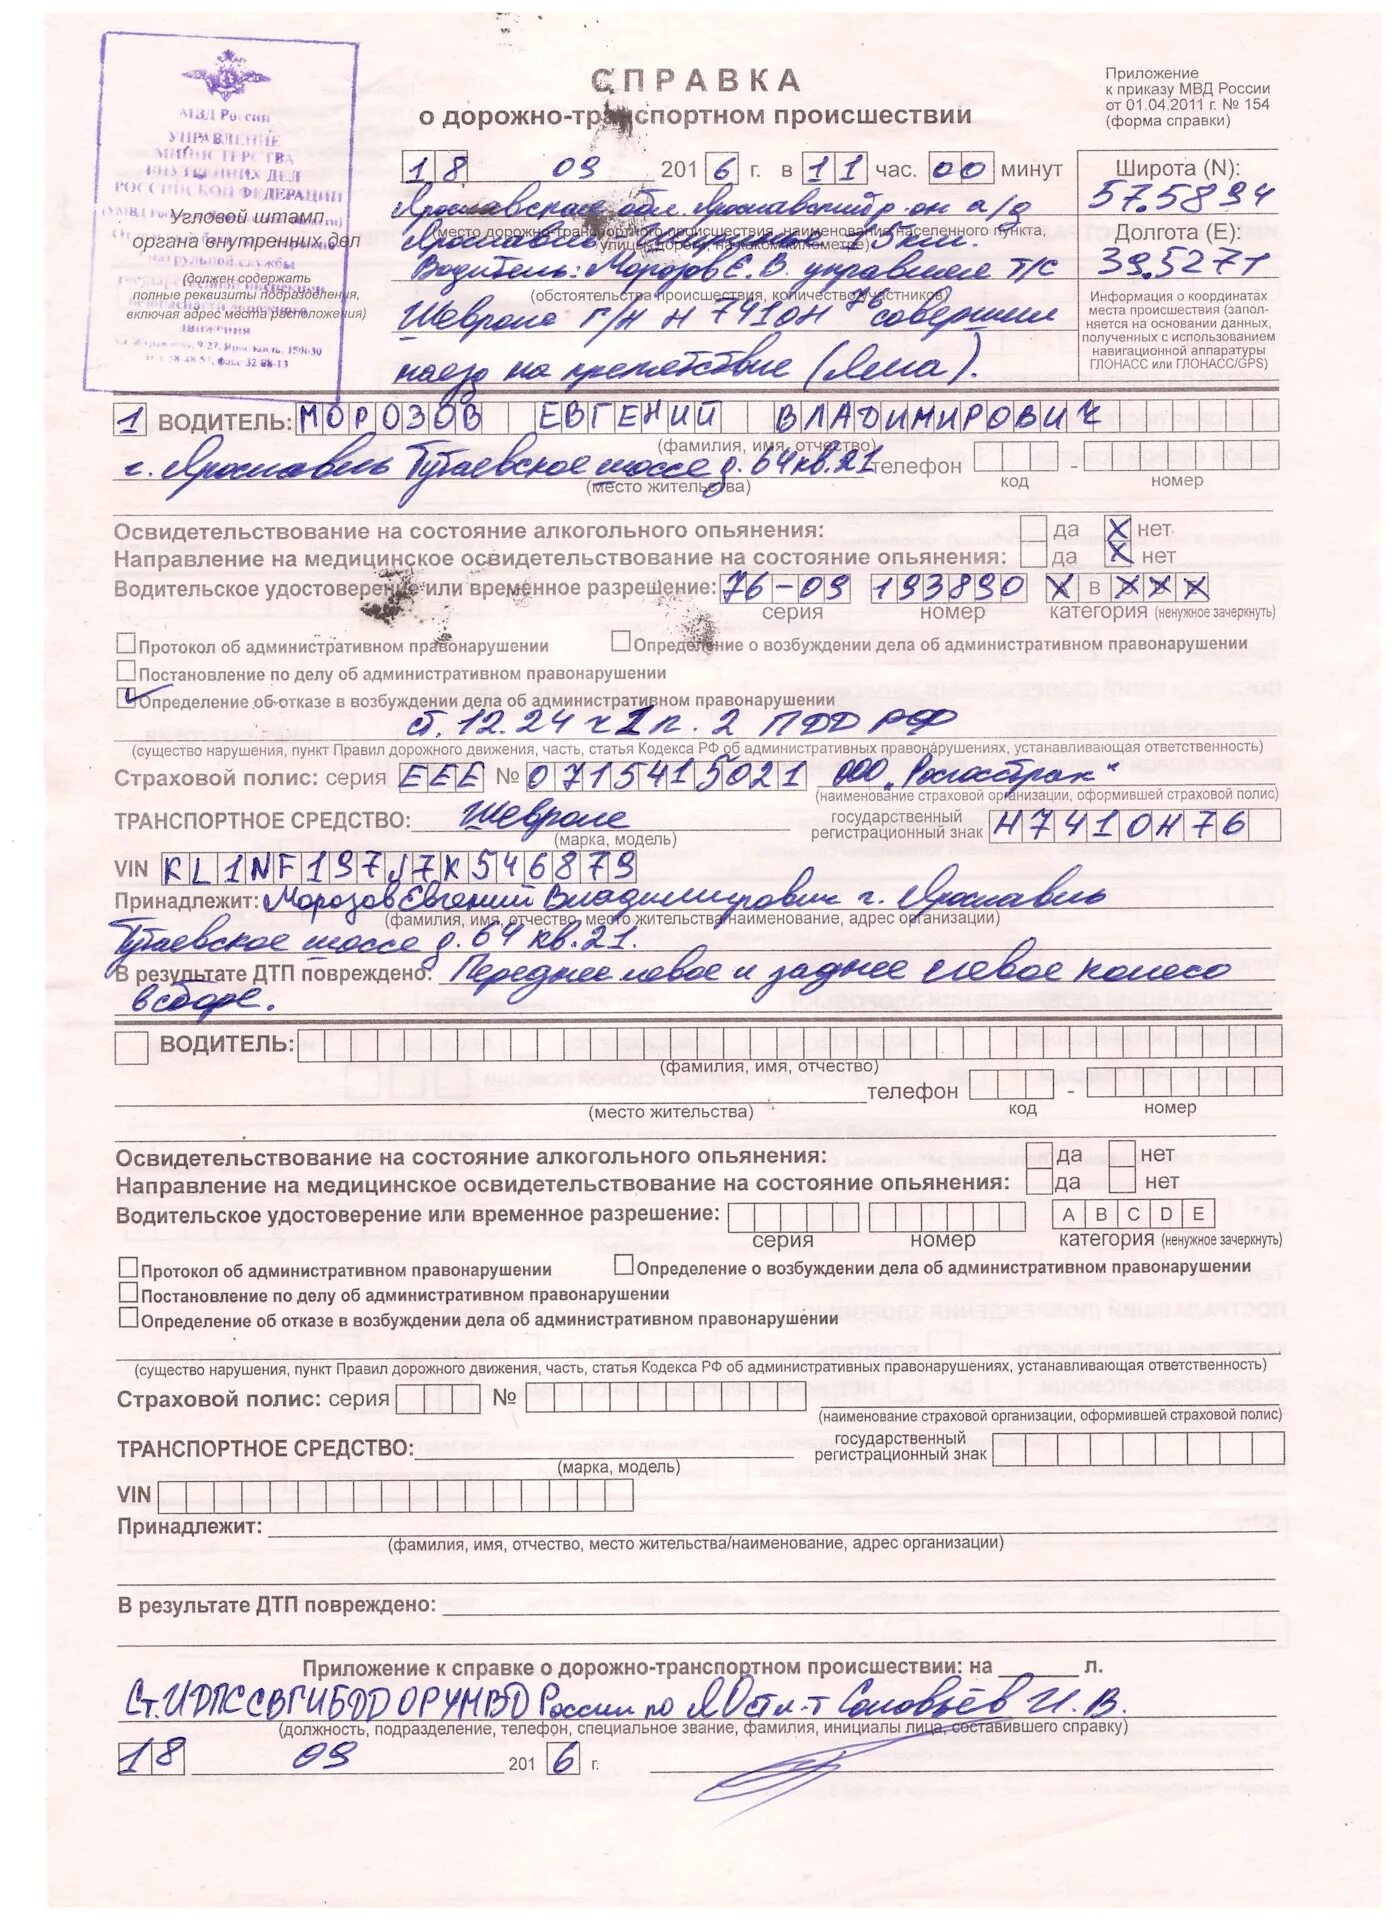 МВД России
УПРАВЛЕНИЕ
МИНИСТЕРСТВА
ВНУТРЕННИХ ДЕЛ
РОССИЙСКОЙ ФЕДЕРАЦИИ
Угловой штамп
органа внутренних дел
(должен содержать
полные реквизиты подразделения,
включая адрес места расположения)
СПРАВКА
о дорожно-транспортном происшествии
Приложение
к приказу МВД России
от 01.04.2011 г. № 154
(форма справки)
18 09 2016 г. в 11 час. 00 минут
Широта (N):
57.5894
Долгота (E):
39.5271
Информация о координатах
места происшествия (запол-
няется на основании данных,
полученных с использованием
навигационной аппаратуры
ГЛОНАСС или ГЛОНАСС/GPS)
Ярославская обл. Ярославский р-он а/д
(место дорожно-транспортного происшествия, наименование населенного пункта,
Ярославль 5 км.
улицы, дороги, на каком километре)
Водитель: Морозов Е.В. управляя т/с
(обстоятельства происшествия, количество участников)
Шевроле г/н Н 741 ОН 76 совершил
наезд на препятствие (Яма).
1 ВОДИТЕЛЬ: МОРОЗОВ ЕВГЕНИЙ ВЛАДИМИРОВИЧ
(фамилия, имя, отчество)
г. Ярославль Тутаевское шоссе д. 64 кв. 21 телефон -
(место жительства) код номер
Освидетельствование на состояние алкогольного опьянения: да X нет
Направление на медицинское освидетельствование на состояние опьянения: да X нет
Водительское удостоверение или временное разрешение: 76-09 193890 X в X X X
серия номер категория (ненужное зачеркнуть)
Протокол об административном правонарушении Определение о возбуждении дела об административном правонарушении
Постановление по делу об административном правонарушении
Определение об отказе в возбуждении дела об административном правонарушении
ст. 12.24 ч 1 п. 2 ПДД РФ
(существо нарушения, пункт Правил дорожного движения, часть, статья Кодекса РФ об административных правонарушениях, устанавливающая ответственность)
Страховой полис: серия ЕЕЕ № 0715415021 ООО „Росгосстрах"
(наименование страховой организации, оформившей страховой полис)
ТРАНСПОРТНОЕ СРЕДСТВО: Шевроле государственный
(марка, модель) регистрационный знак Н741ОН76
VIN KL1NF197J7K546879
Принадлежит: Морозов Евгений Владимирович г. Ярославль
(фамилия, имя, отчество, место жительства/наименование, адрес организации)
Тутаевское шоссе д. 64 кв. 21.
В результате ДТП повреждено: Переднее левое и заднее левое колесо
в сборе.
ВОДИТЕЛЬ:
(фамилия, имя, отчество)
телефон -
(место жительства) код номер
Освидетельствование на состояние алкогольного опьянения: да нет
Направление на медицинское освидетельствование на состояние опьянения: да нет
Водительское удостоверение или временное разрешение: A B C D E
серия номер категория (ненужное зачеркнуть)
Протокол об административном правонарушении Определение о возбуждении дела об административном правонарушении
Постановление по делу об административном правонарушении
Определение об отказе в возбуждении дела об административном правонарушении
(существо нарушения, пункт Правил дорожного движения, часть, статья Кодекса РФ об административных правонарушениях, устанавливающая ответственность)
Страховой полис: серия №
(наименование страховой организации, оформившей страховой полис)
ТРАНСПОРТНОЕ СРЕДСТВО: государственный
(марка, модель) регистрационный знак
VIN
Принадлежит:
(фамилия, имя, отчество, место жительства/наименование, адрес организации)
В результате ДТП повреждено:
Приложение к справке о дорожно-транспортном происшествии: на л.
Ст. ИДПС СВ ГИБДД ОР УМВД России по ЯО ст. л-т Соловьёв И.В.
(должность, подразделение, телефон, специальное звание, фамилия, инициалы лица, составившего справку)
18 09 2016 г.